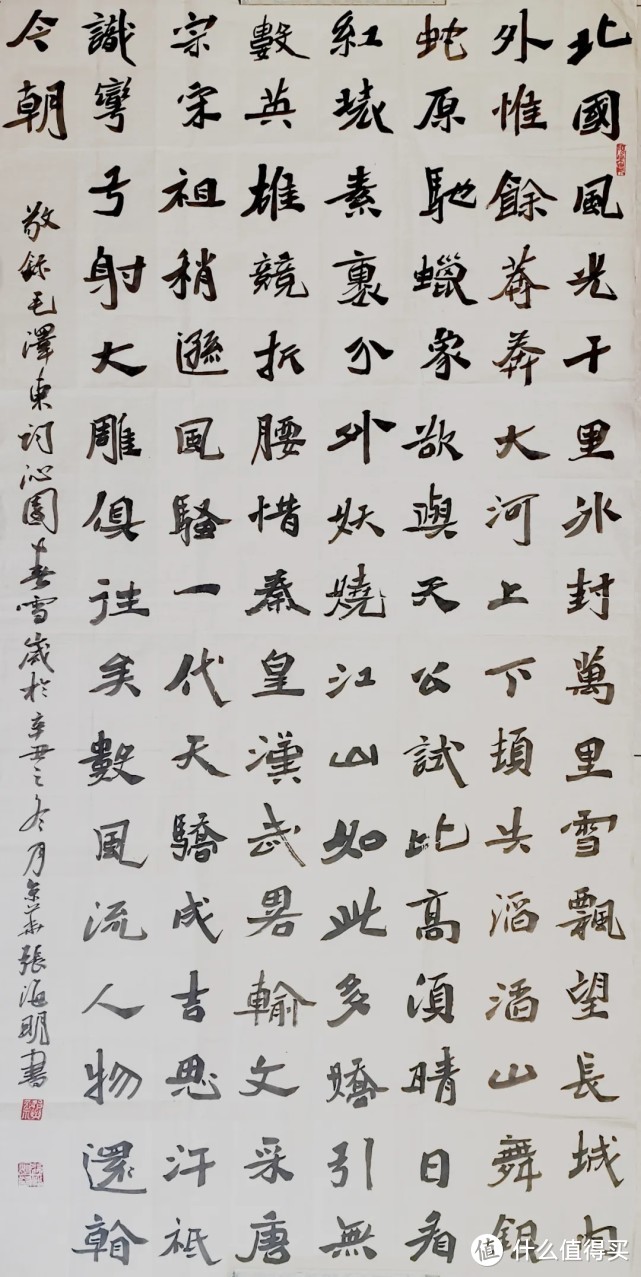 北國風光千里冰封萬里雪飄望長城内
外惟餘莽莽大河上下頓失滔滔山舞銀
蛇原馳蠟象欲與天公試比高須晴日看
紅裝素裹分外妖嬈江山如此多嬌引無
數英雄競折腰惜秦皇漢武畧輸文采唐
宗宋祖稍遜風騷一代天驕成吉思汗祗
識彎弓射大雕俱往矣數風流人物還看
今朝
敬録毛澤東詞沁園春雪歲於辛丑之冬月京華張海明書
值 什么值得买